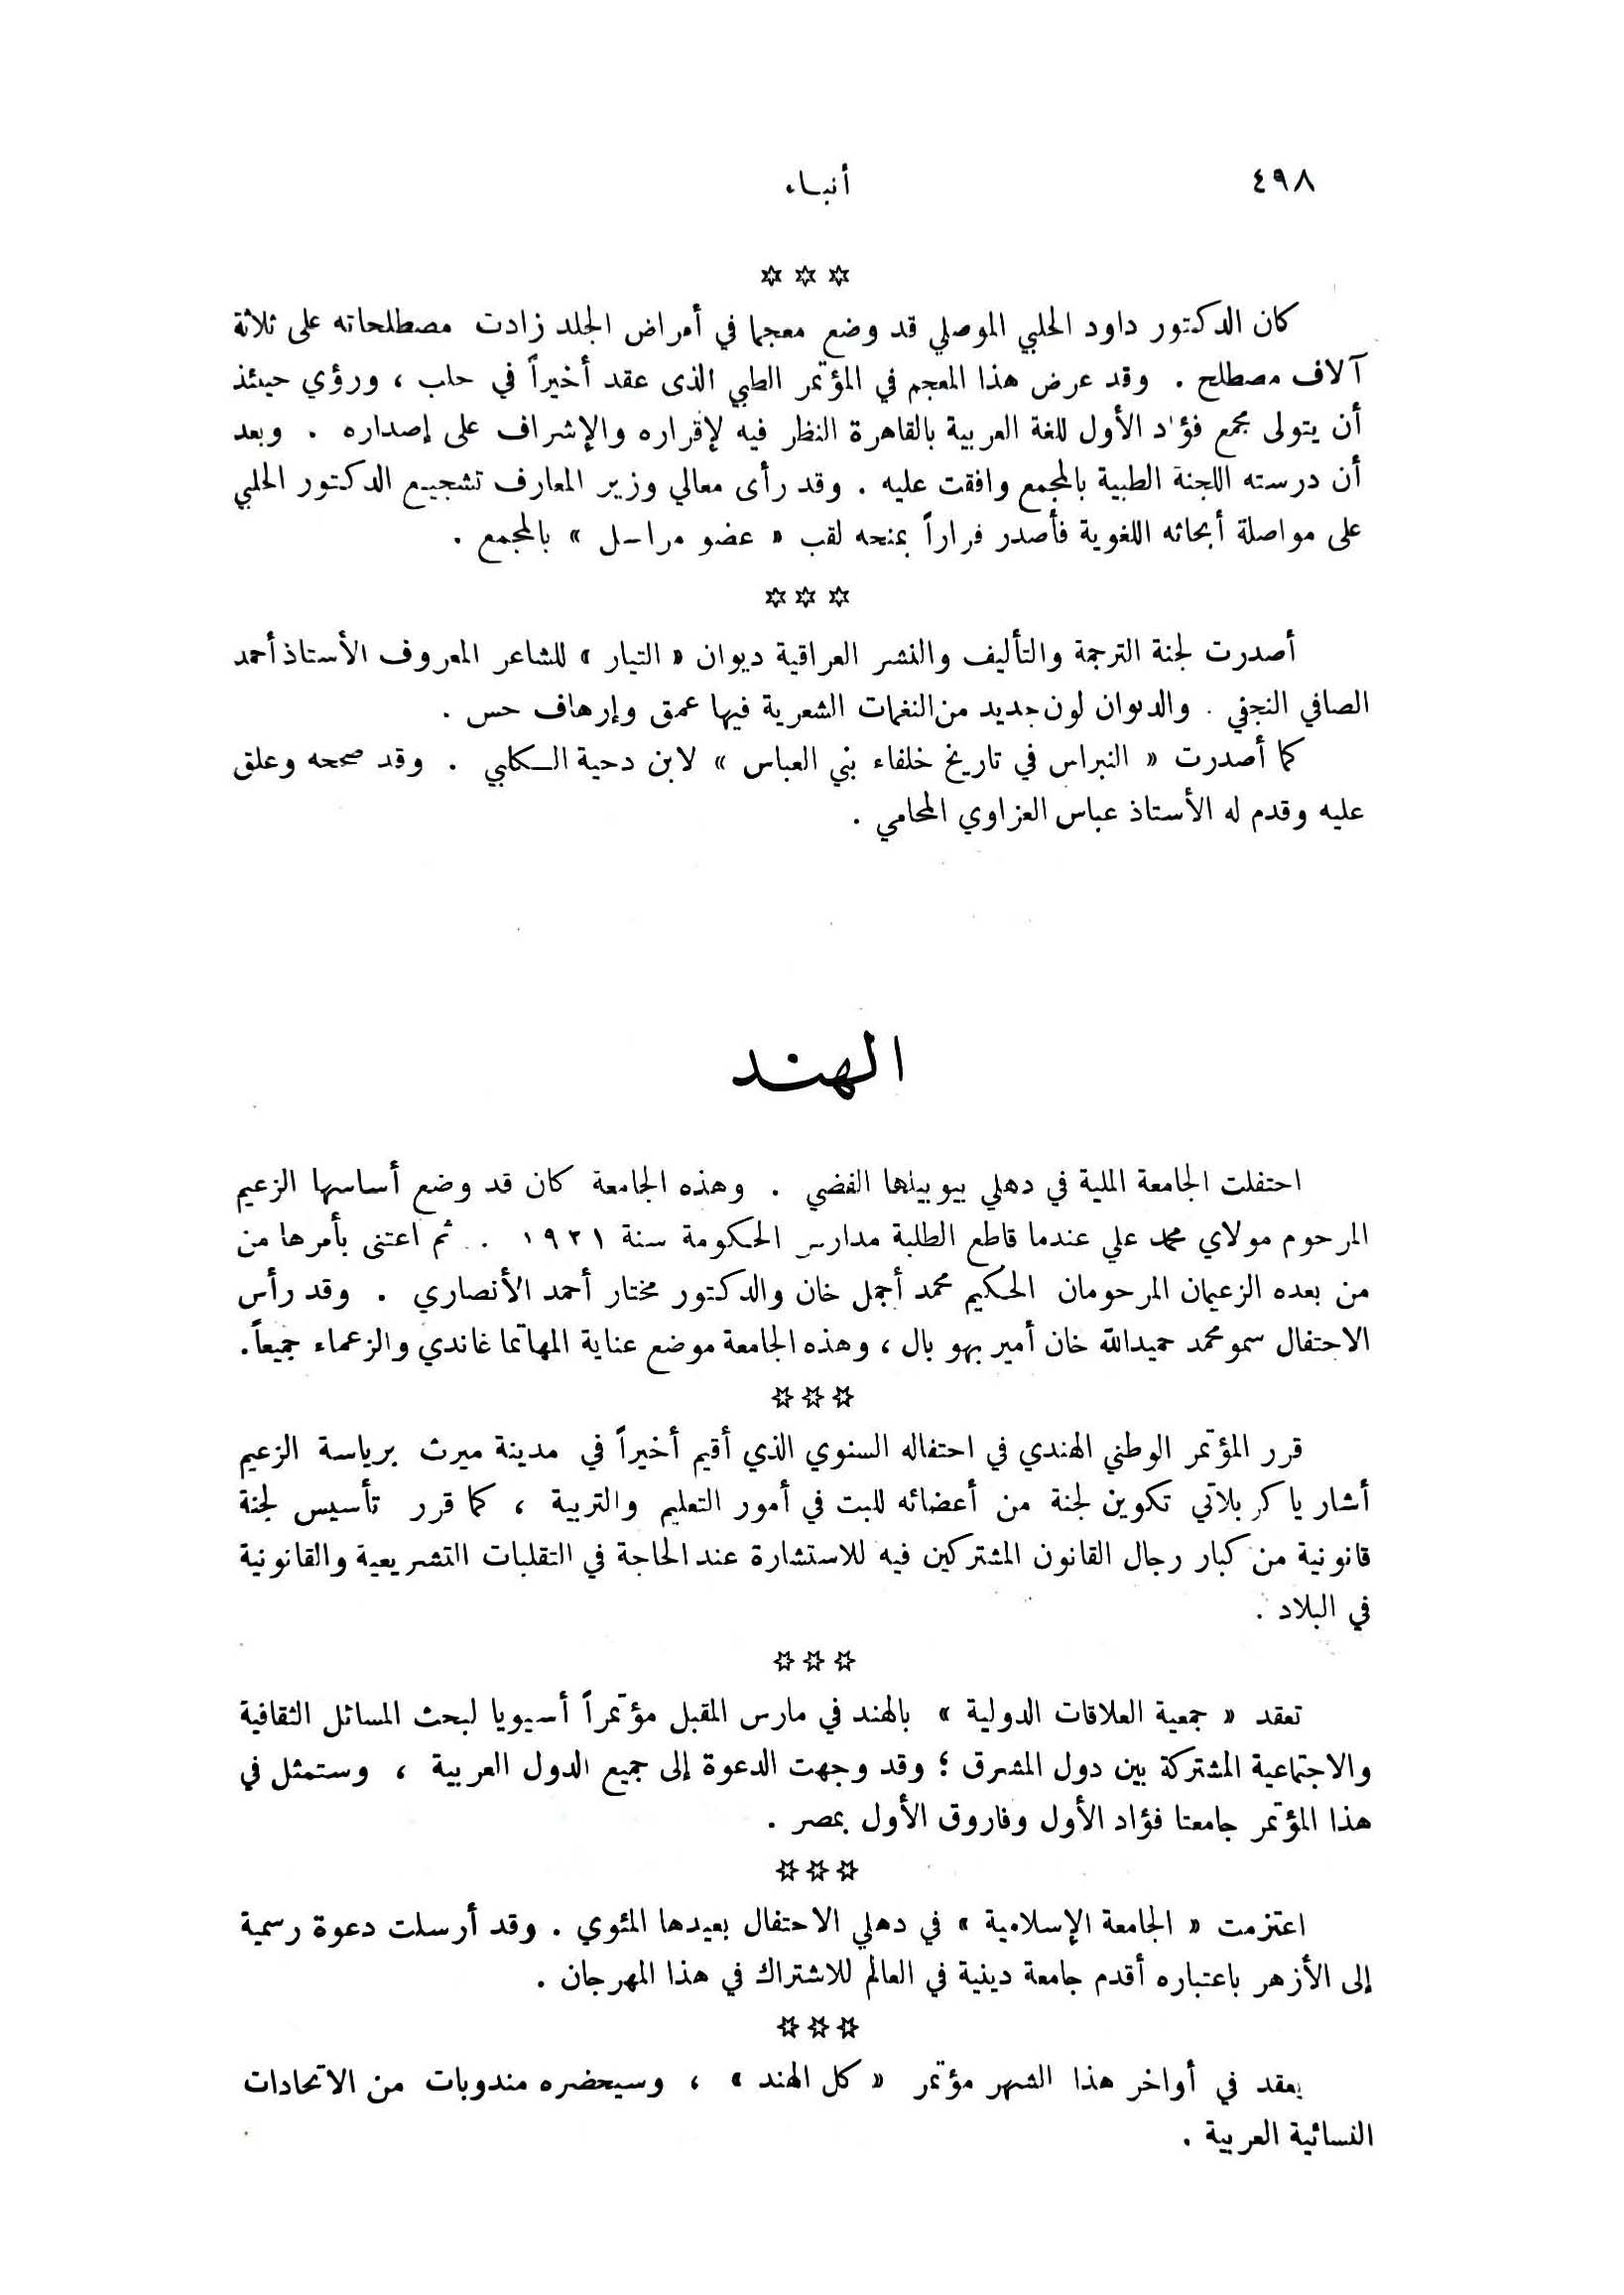 ٤٩٨
أنباء
✡ ✡ ✡
كان الدكتور داود الحلبي الموصلي قد وضع معجما في أمراض الجلد زادت مصطلحاته على ثلاثة
آلاف مصطلح . وقد عرض هذا المعجم في المؤتمر الطبي الذى عقد أخيراً في حلب ، ورؤي حينئذ
أن يتولى مجمع فؤاد الأول للغة العربية بالقاهرة النظر فيه لإقراره والإشراف على إصداره . وبعد
أن درسته اللجنة الطبية بالمجمع وافقت عليه . وقد رأى معالي وزير المعارف تشجيع الدكتور الحلبي
على مواصلة أبحاثه اللغوية فأصدر قراراً بمنحه لقب « عضو مراسل » بالمجمع .
✡ ✡ ✡
أصدرت لجنة الترجمة والتأليف والنشر العراقية ديوان « التيار » للشاعر المعروف الأستاذ أحمد
الصافي النجفي . والديوان لون جديد من النغمات الشعرية فيها عمق وإرهاف حس .
كما أصدرت « النبراس في تاريخ خلفاء بني العباس » لابن دحية الكلبي . وقد صححه وعلق
عليه وقدم له الأستاذ عباس العزاوي المحامي .
الهند
احتفلت الجامعة الملية في دهلي بيوبيلها الفضي . وهذه الجامعة كان قد وضع أساسها الزعيم
المرحوم مولاي محمد علي عندما قاطع الطلبة مدارس الحكومة سنة ١٩٢١ . ثم اعتنى بأمرها من
من بعده الزعيمان المرحومان الحكيم محمد أجمل خان والدكتور مختار أحمد الأنصاري . وقد رأس
الاحتفال سمو محمد حميدالله خان أمير بهو بال ، وهذه الجامعة موضع عناية المهاتما غاندي والزعماء جميعاً .
✡ ✡ ✡
قرر المؤتمر الوطني الهندي في احتفاله السنوي الذي أقيم أخيراً في مدينة ميرث برياسة الزعيم
أشار يا كر بلاتي تكوين لجنة من أعضائه للبت في أمور التعليم والتربية ، كما قرر تأسيس لجنة
قانونية من كبار رجال القانون المشتركين فيه للاستشارة عند الحاجة في التقلبات التشريعية والقانونية
في البلاد .
✡ ✡ ✡
تعقد « جمعية العلاقات الدولية » بالهند في مارس المقبل مؤتمراً أسيويا لبحث المسائل الثقافية
والاجتماعية المشتركة بين دول المشرق ؛ وقد وجهت الدعوة إلى جميع الدول العربية ، وستمثل في
هذا المؤتمر جامعتا فؤاد الأول وفاروق الأول بمصر .
✡ ✡ ✡
اعتزمت « الجامعة الإسلامية » في دهلي الاحتفال بعيدها المئوي . وقد أرسلت دعوة رسمية
إلى الأزهر باعتباره أقدم جامعة دينية في العالم للاشتراك في هذا المهرجان .
✡ ✡ ✡
يعقد في أواخر هذا الشهر مؤتمر « كل الهند » ، وسيحضره مندوبات من الاتحادات
النسائية العربية .